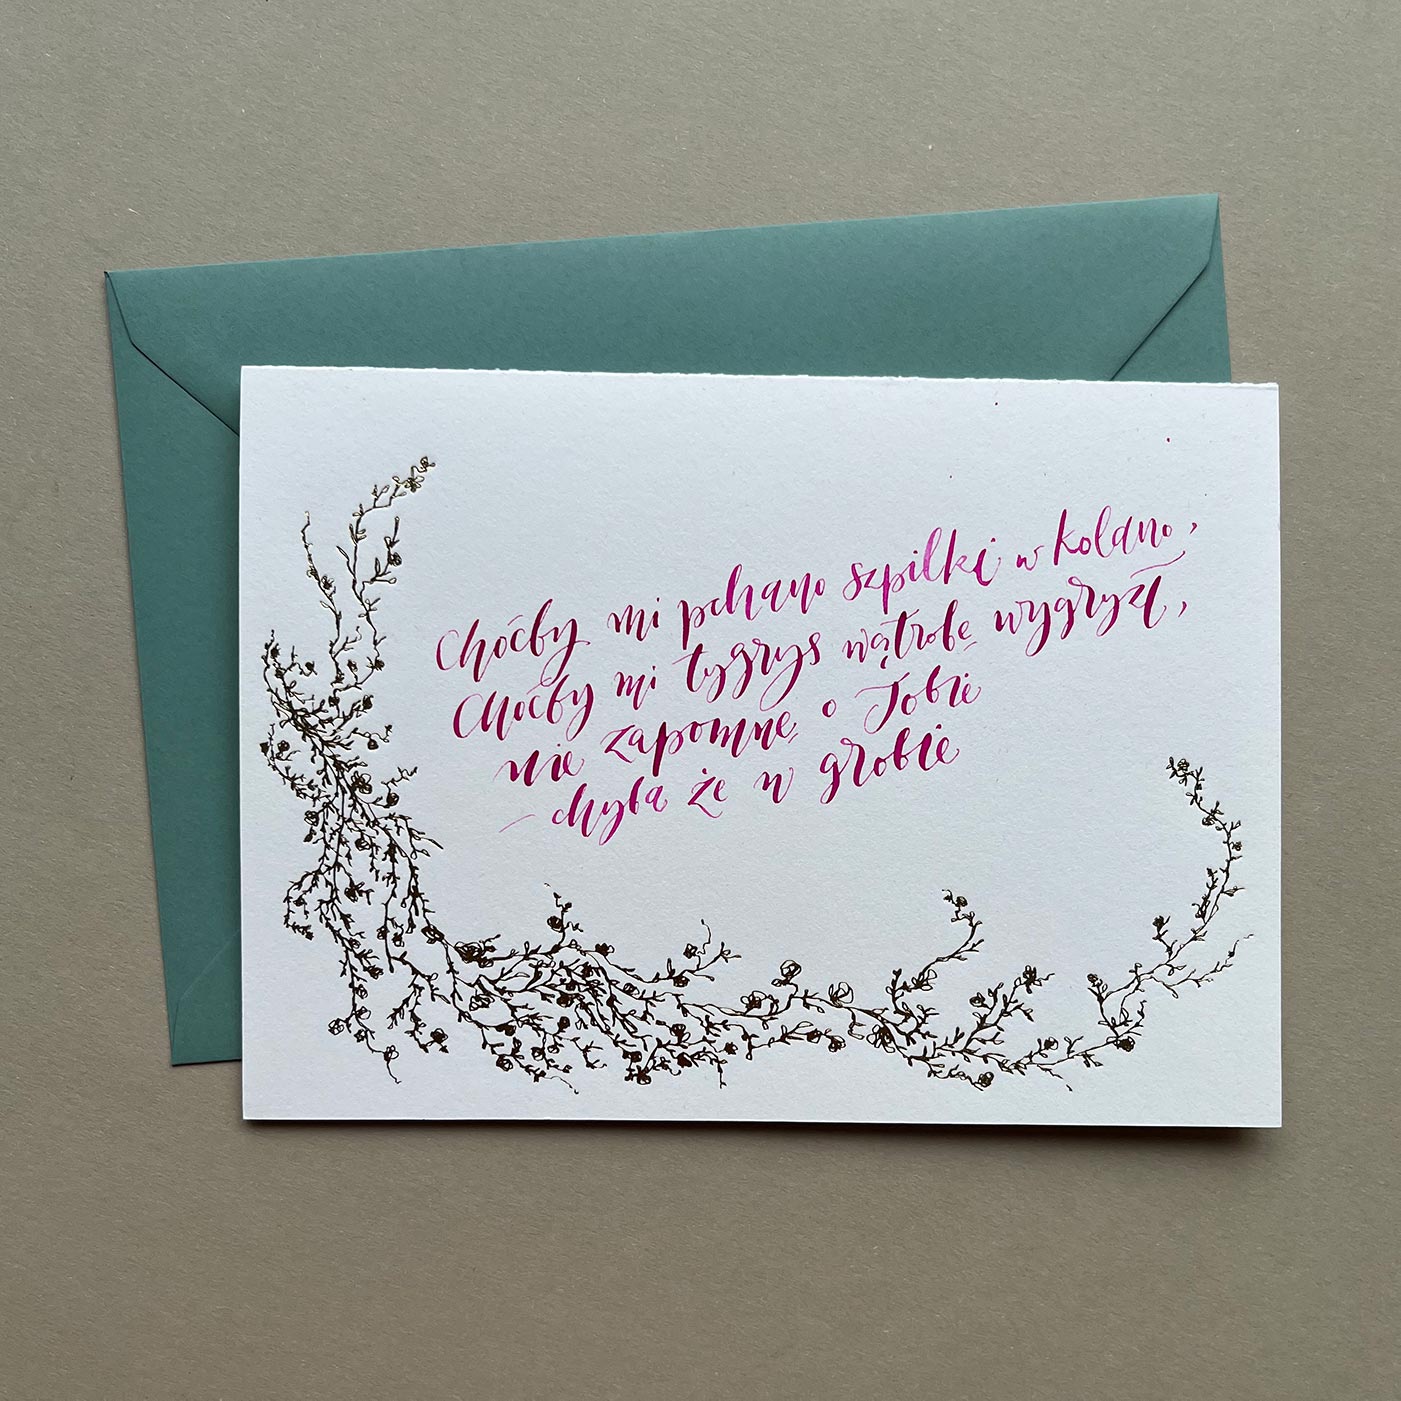 Choćby mi pchano szpilki w kolano,
Choćby mi tygrys wątrobę wygryzł,
nie zapomnę o Tobie
– chyba że w grobie